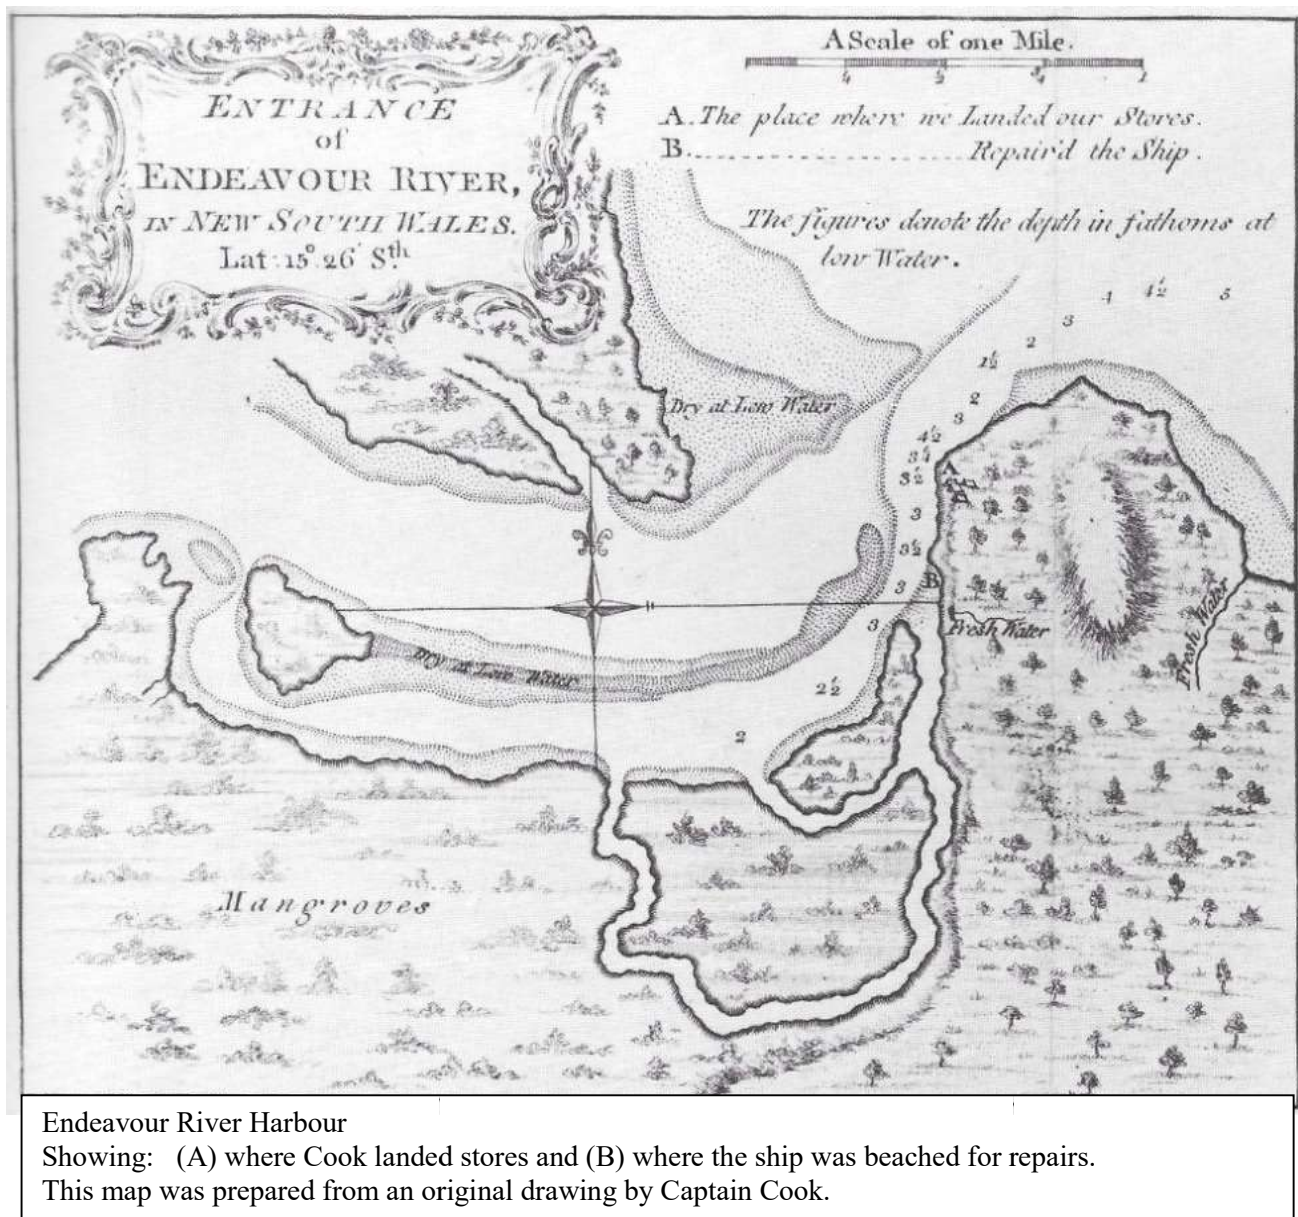 ENTRANCE
of
ENDEAVOUR RIVER,
IN NEW SOUTH WALES.
Lat: 15° 26' Sth
A Scale of one Mile.
1/4 1/2 3/4 1
A. The place where we Landed our Stores.
B. ........................ Repair'd the Ship.
The figures denote the depth in fathoms at
low Water.
4 4½ 5
3
2
1½
2
3
Dry at Low Water
4½
3¼
A
3½
3
3½
B
3
3
Fresh Water
Fresh Water
Dry at Low Water
2½
2
Mangroves
Endeavour River Harbour
Showing: (A) where Cook landed stores and (B) where the ship was beached for repairs.
This map was prepared from an original drawing by Captain Cook.